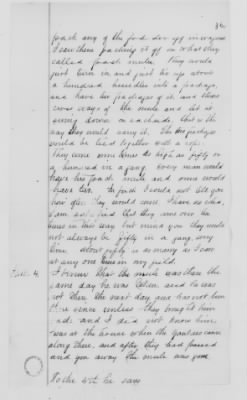 36
pack any of the fod der up in wagons
I saw them packing it off in what they
called pack mules. They would
just turn in and just tie up about
a hundred bundles into a package,
and have two packages of it, and throw
cross ways of the mule and let it
swing down on each side, that is the
way they would carry it. The two packages
would be tied together with a rope.
They come some times as high as fifty or
a hundred in a gang. Every man would
have his pack mule and some would
have two. The facts I could not tell you
how often they would come. I have no idea.
I am satisfied that they was over the
times in this day but mind you they would
not always be fifty in a gang, every
time. About fifty is as many as I saw
at any one time in my field.
I know that the mule was there the
same day he was taken and he was
not there the next day and has not been
there since unless they brought him
and I did not know him
was at the house when the Yankees came
along there, and after they had passed
and gone away the mule was gone
he says